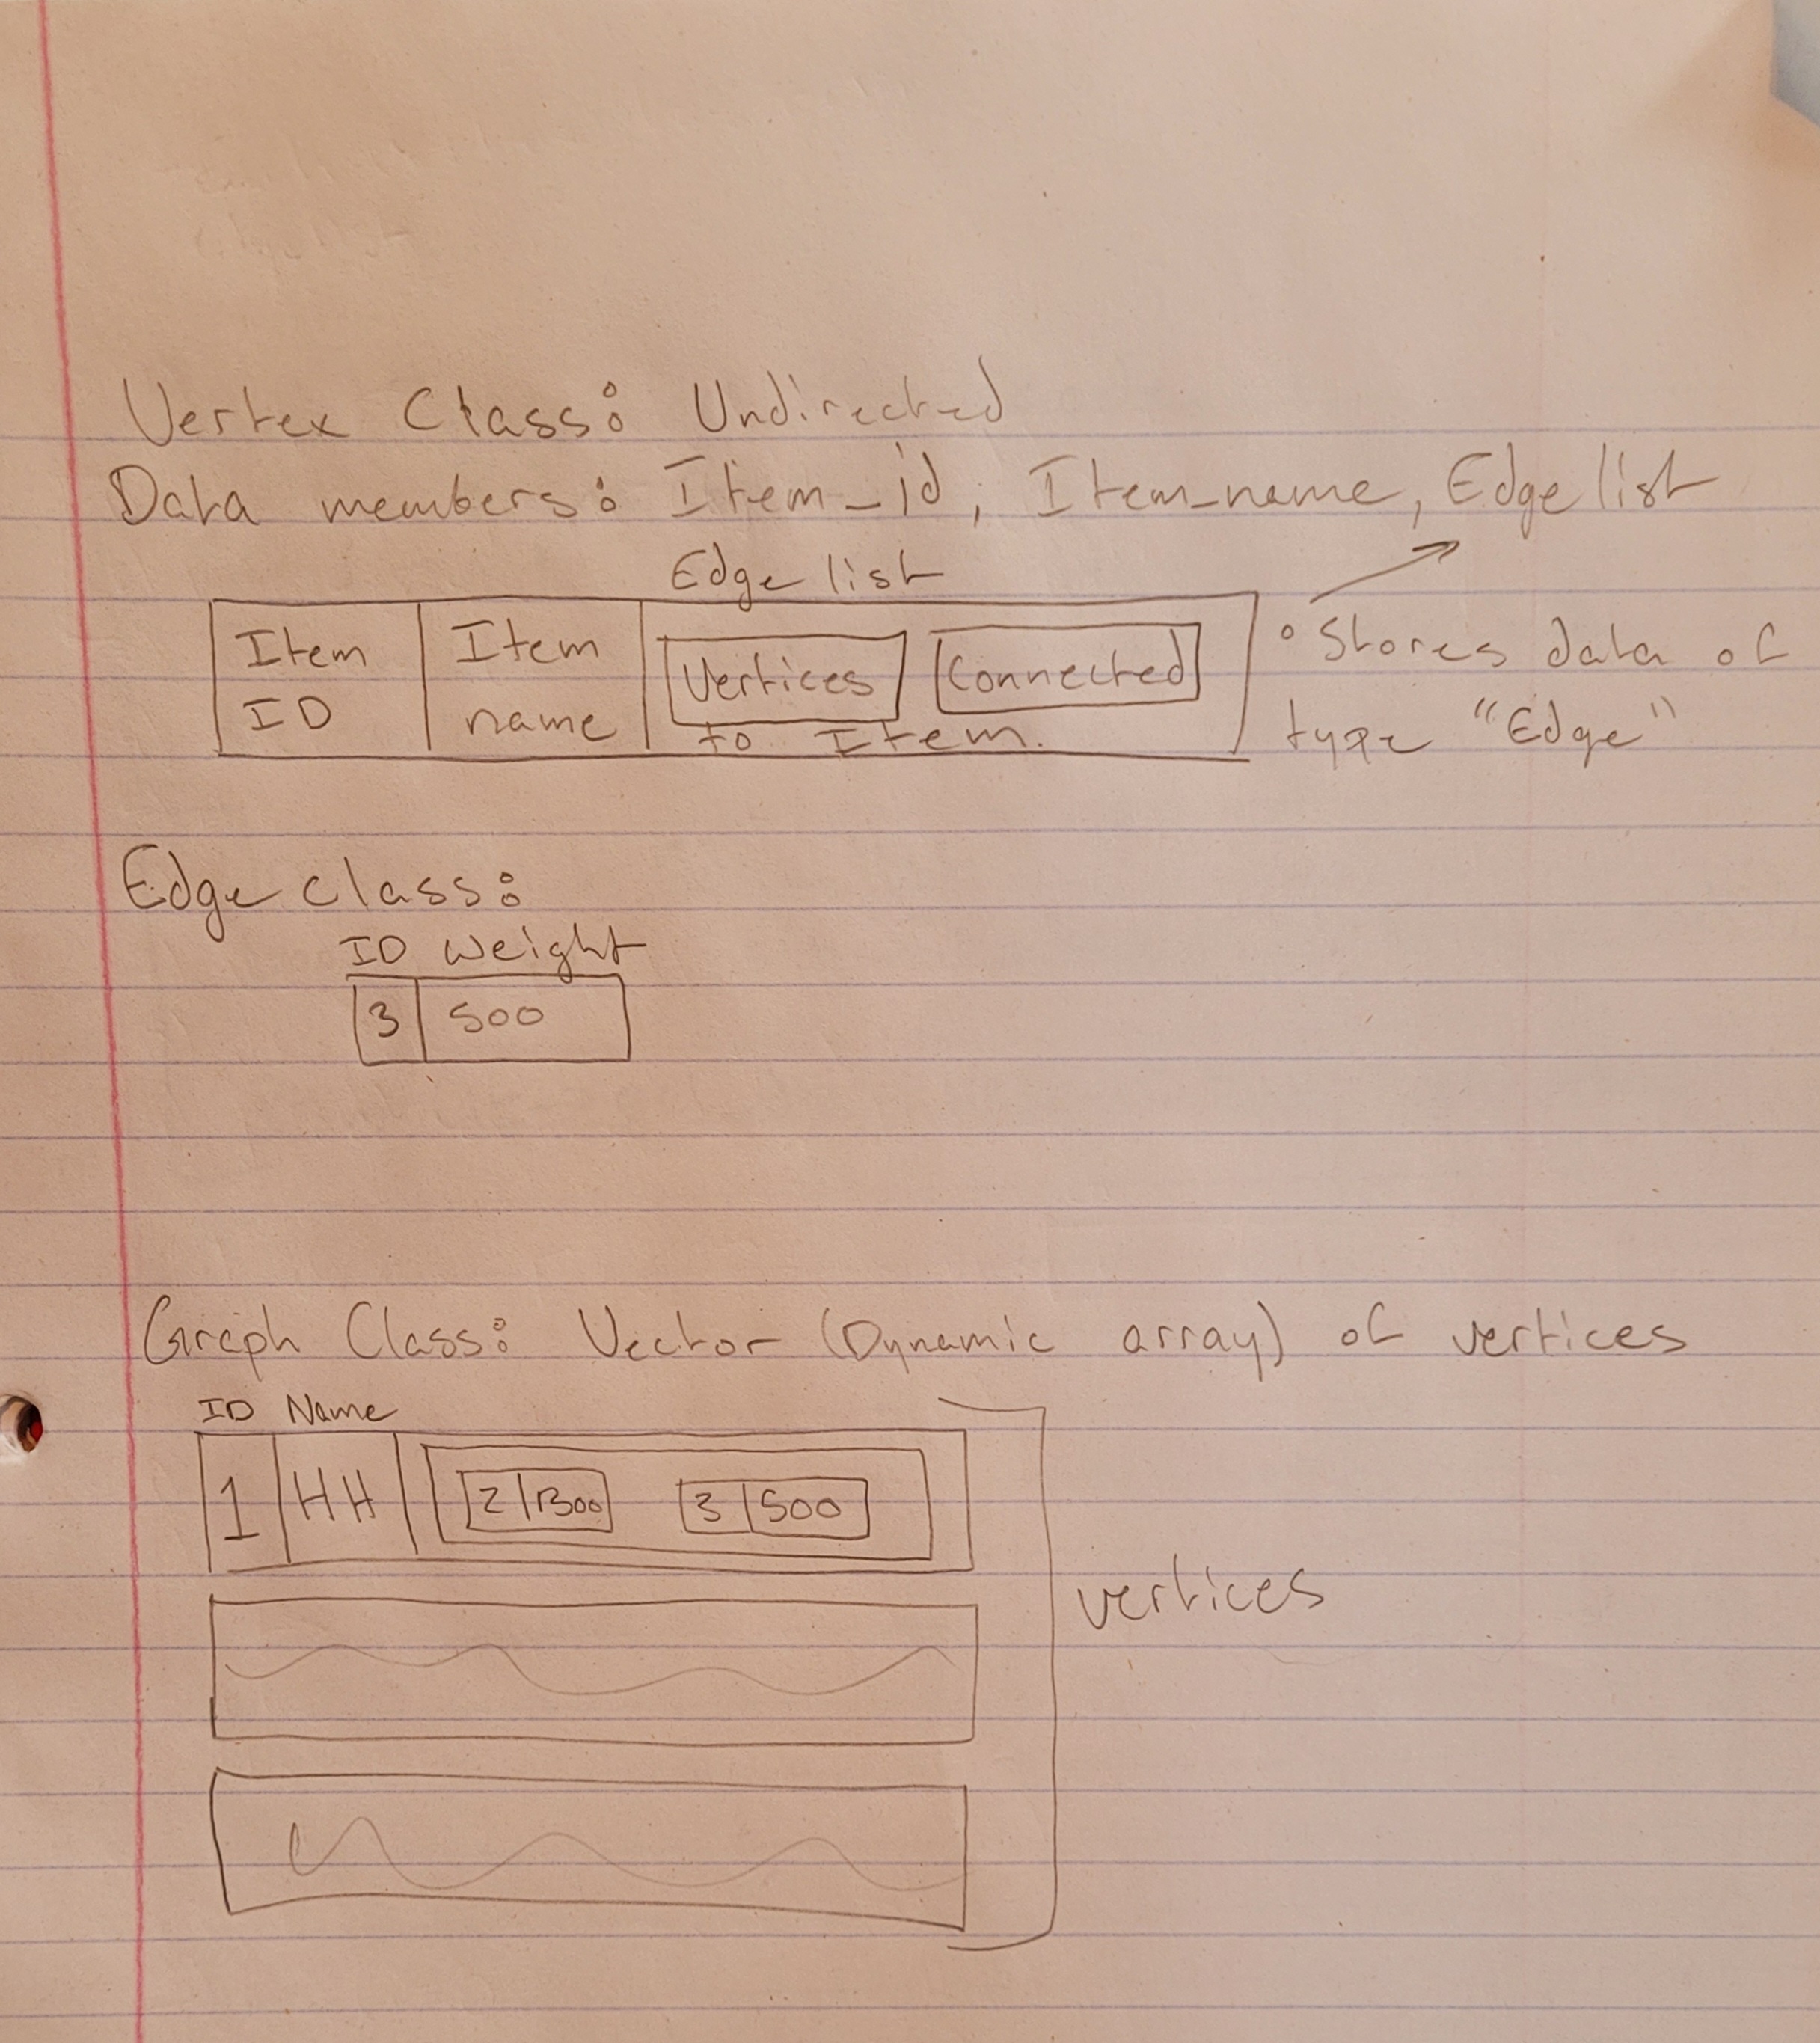 Vertex Class: Undirected
Data members: Item_id, Item_name, Edge list
Edge list
Item ID
Item name
Vertices Connected
to Item.
• Stores data of
type "Edge"
Edge class:
ID Weight
3 500
Graph Class: Vector (Dynamic array) of vertices
ID Name
1 HH 2 1300 3 500
vertices